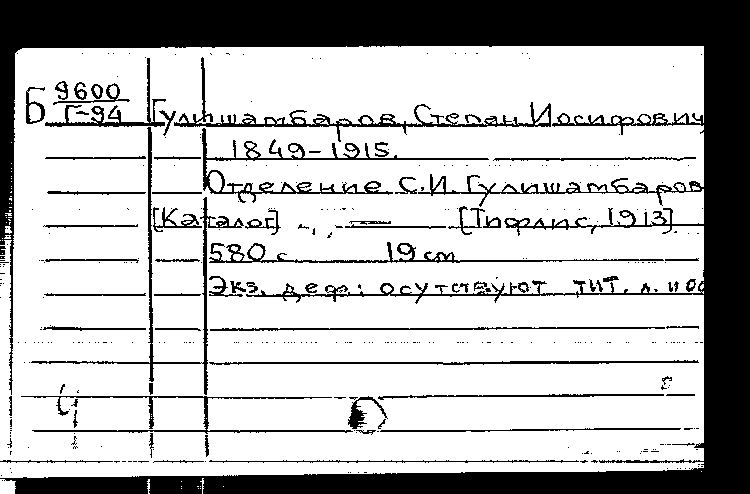 Б 9600
Г-94 Гулишамбаров, Степан Иосифович
1849-1915.
Отделение С.И. Гулишамбаров
[Каталог] — [Тифлис, 1913].
580 с. 19 см
Экз. деф.: осутствуют тит. л. и об
Ч